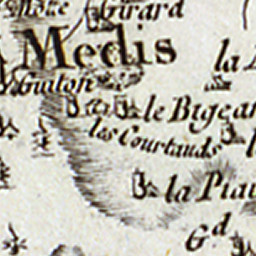 Girard
Medis
la
Guiton
le Bigear
les Courtauds
la Plai
Gd